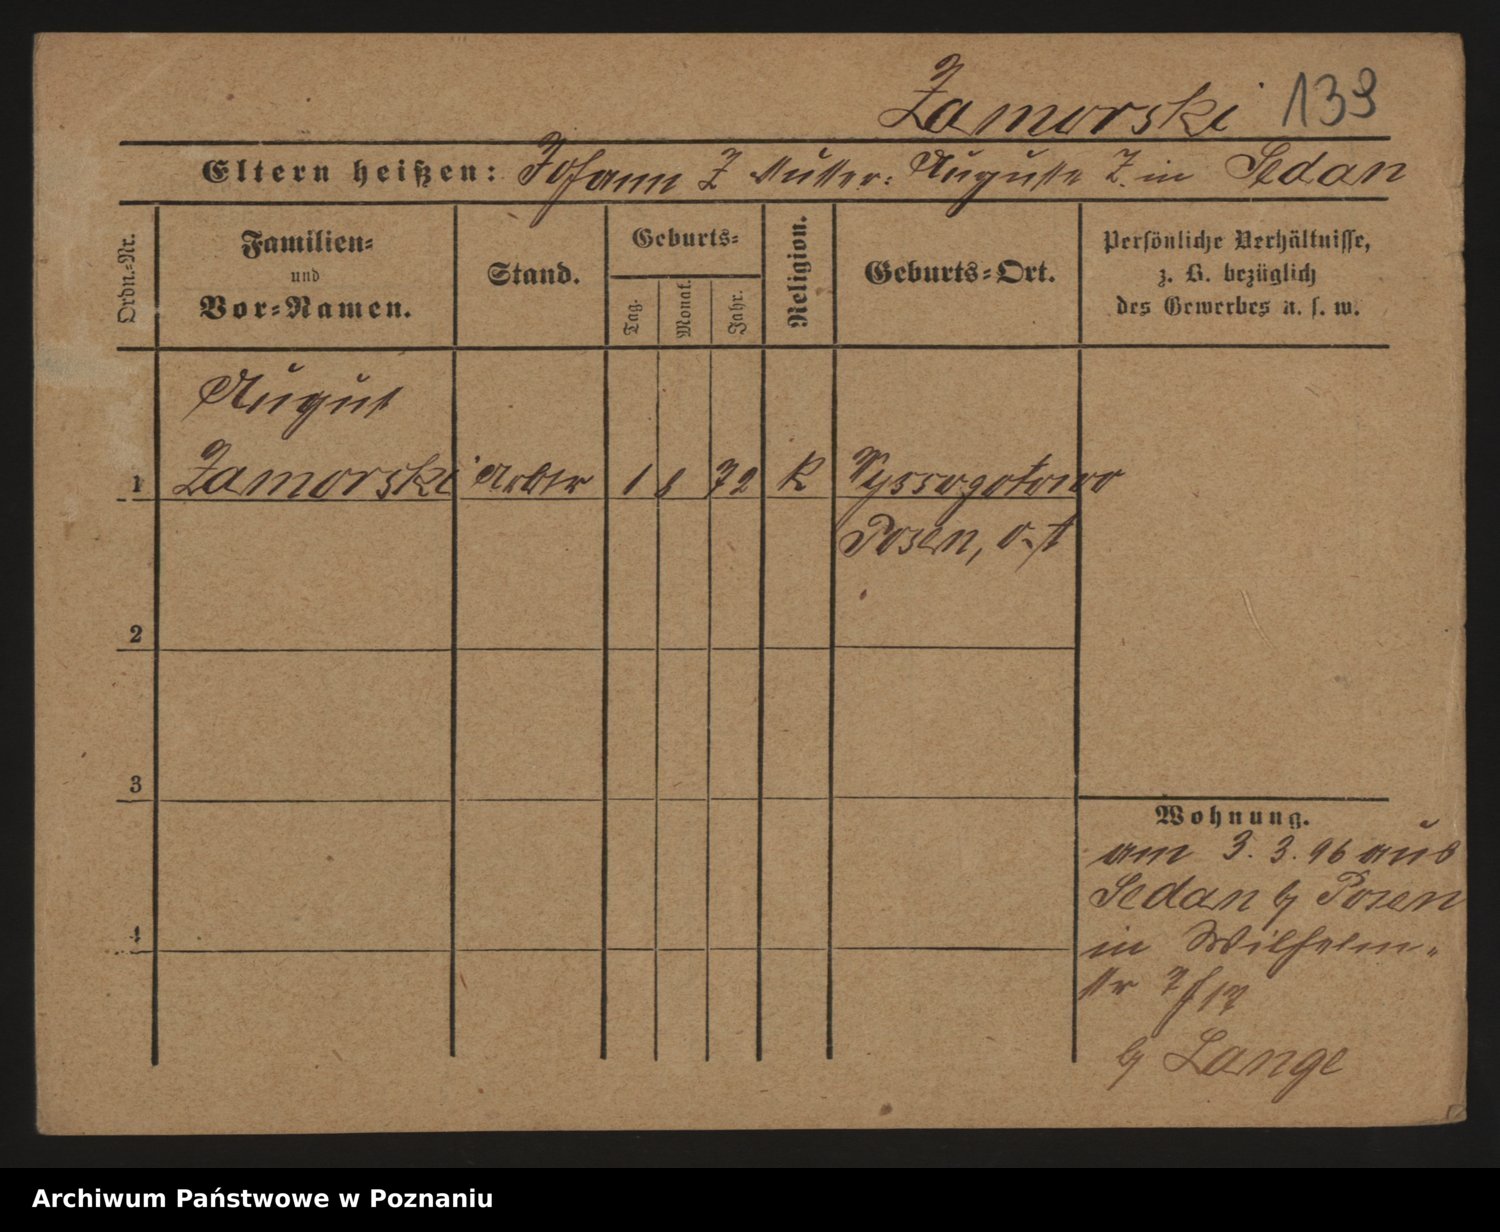 Zamorski 139
Eltern heißen: Johann Z Mutter: Auguste Z. in Sedan
Ordn.=Nr.
Familien=
und
Vor=Namen.
Stand.
Geburts=
Tag.
Monat.
Jahr.
Religion.
Geburts=Ort.
Persönliche Verhältnisse,
z. B. bezüglich
des Gewerbes u. s. w.
August
1 Zamorski Arbtr 1 8 72 K Wyssogotowo
Posen, ost
2
3
4
Wohnung.
am 3. 3. 96 aus
Sedan b/ Posen
in Wilhelm-
str
b/ Lange
Archiwum Państwowe w Poznaniu